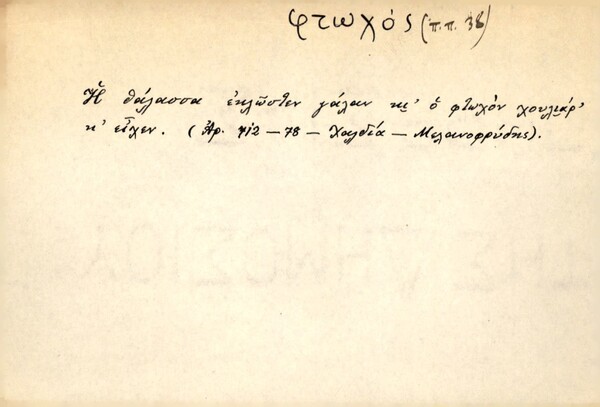 φτωχός (π.π. 38)
Ἡ θάλασσα ἐκλῶστεν γάλαν κι' ὁ φτωχὸν χουλιάρ'
κ' εἶχεν. (Ἀρ. 712 – 78 – Χαλδία – Μελανοφρύδης).